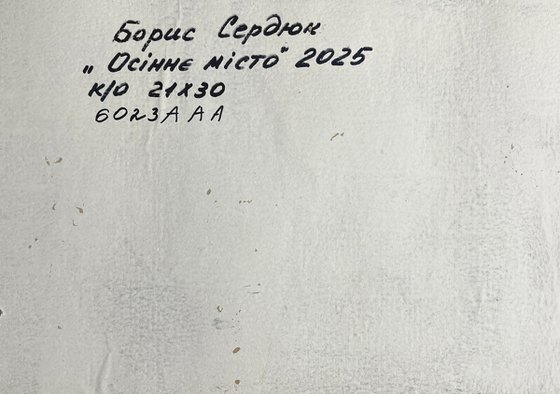 Борис Сердюк
„Осіннє місто" 2025
к/о 21х30
6023ААА